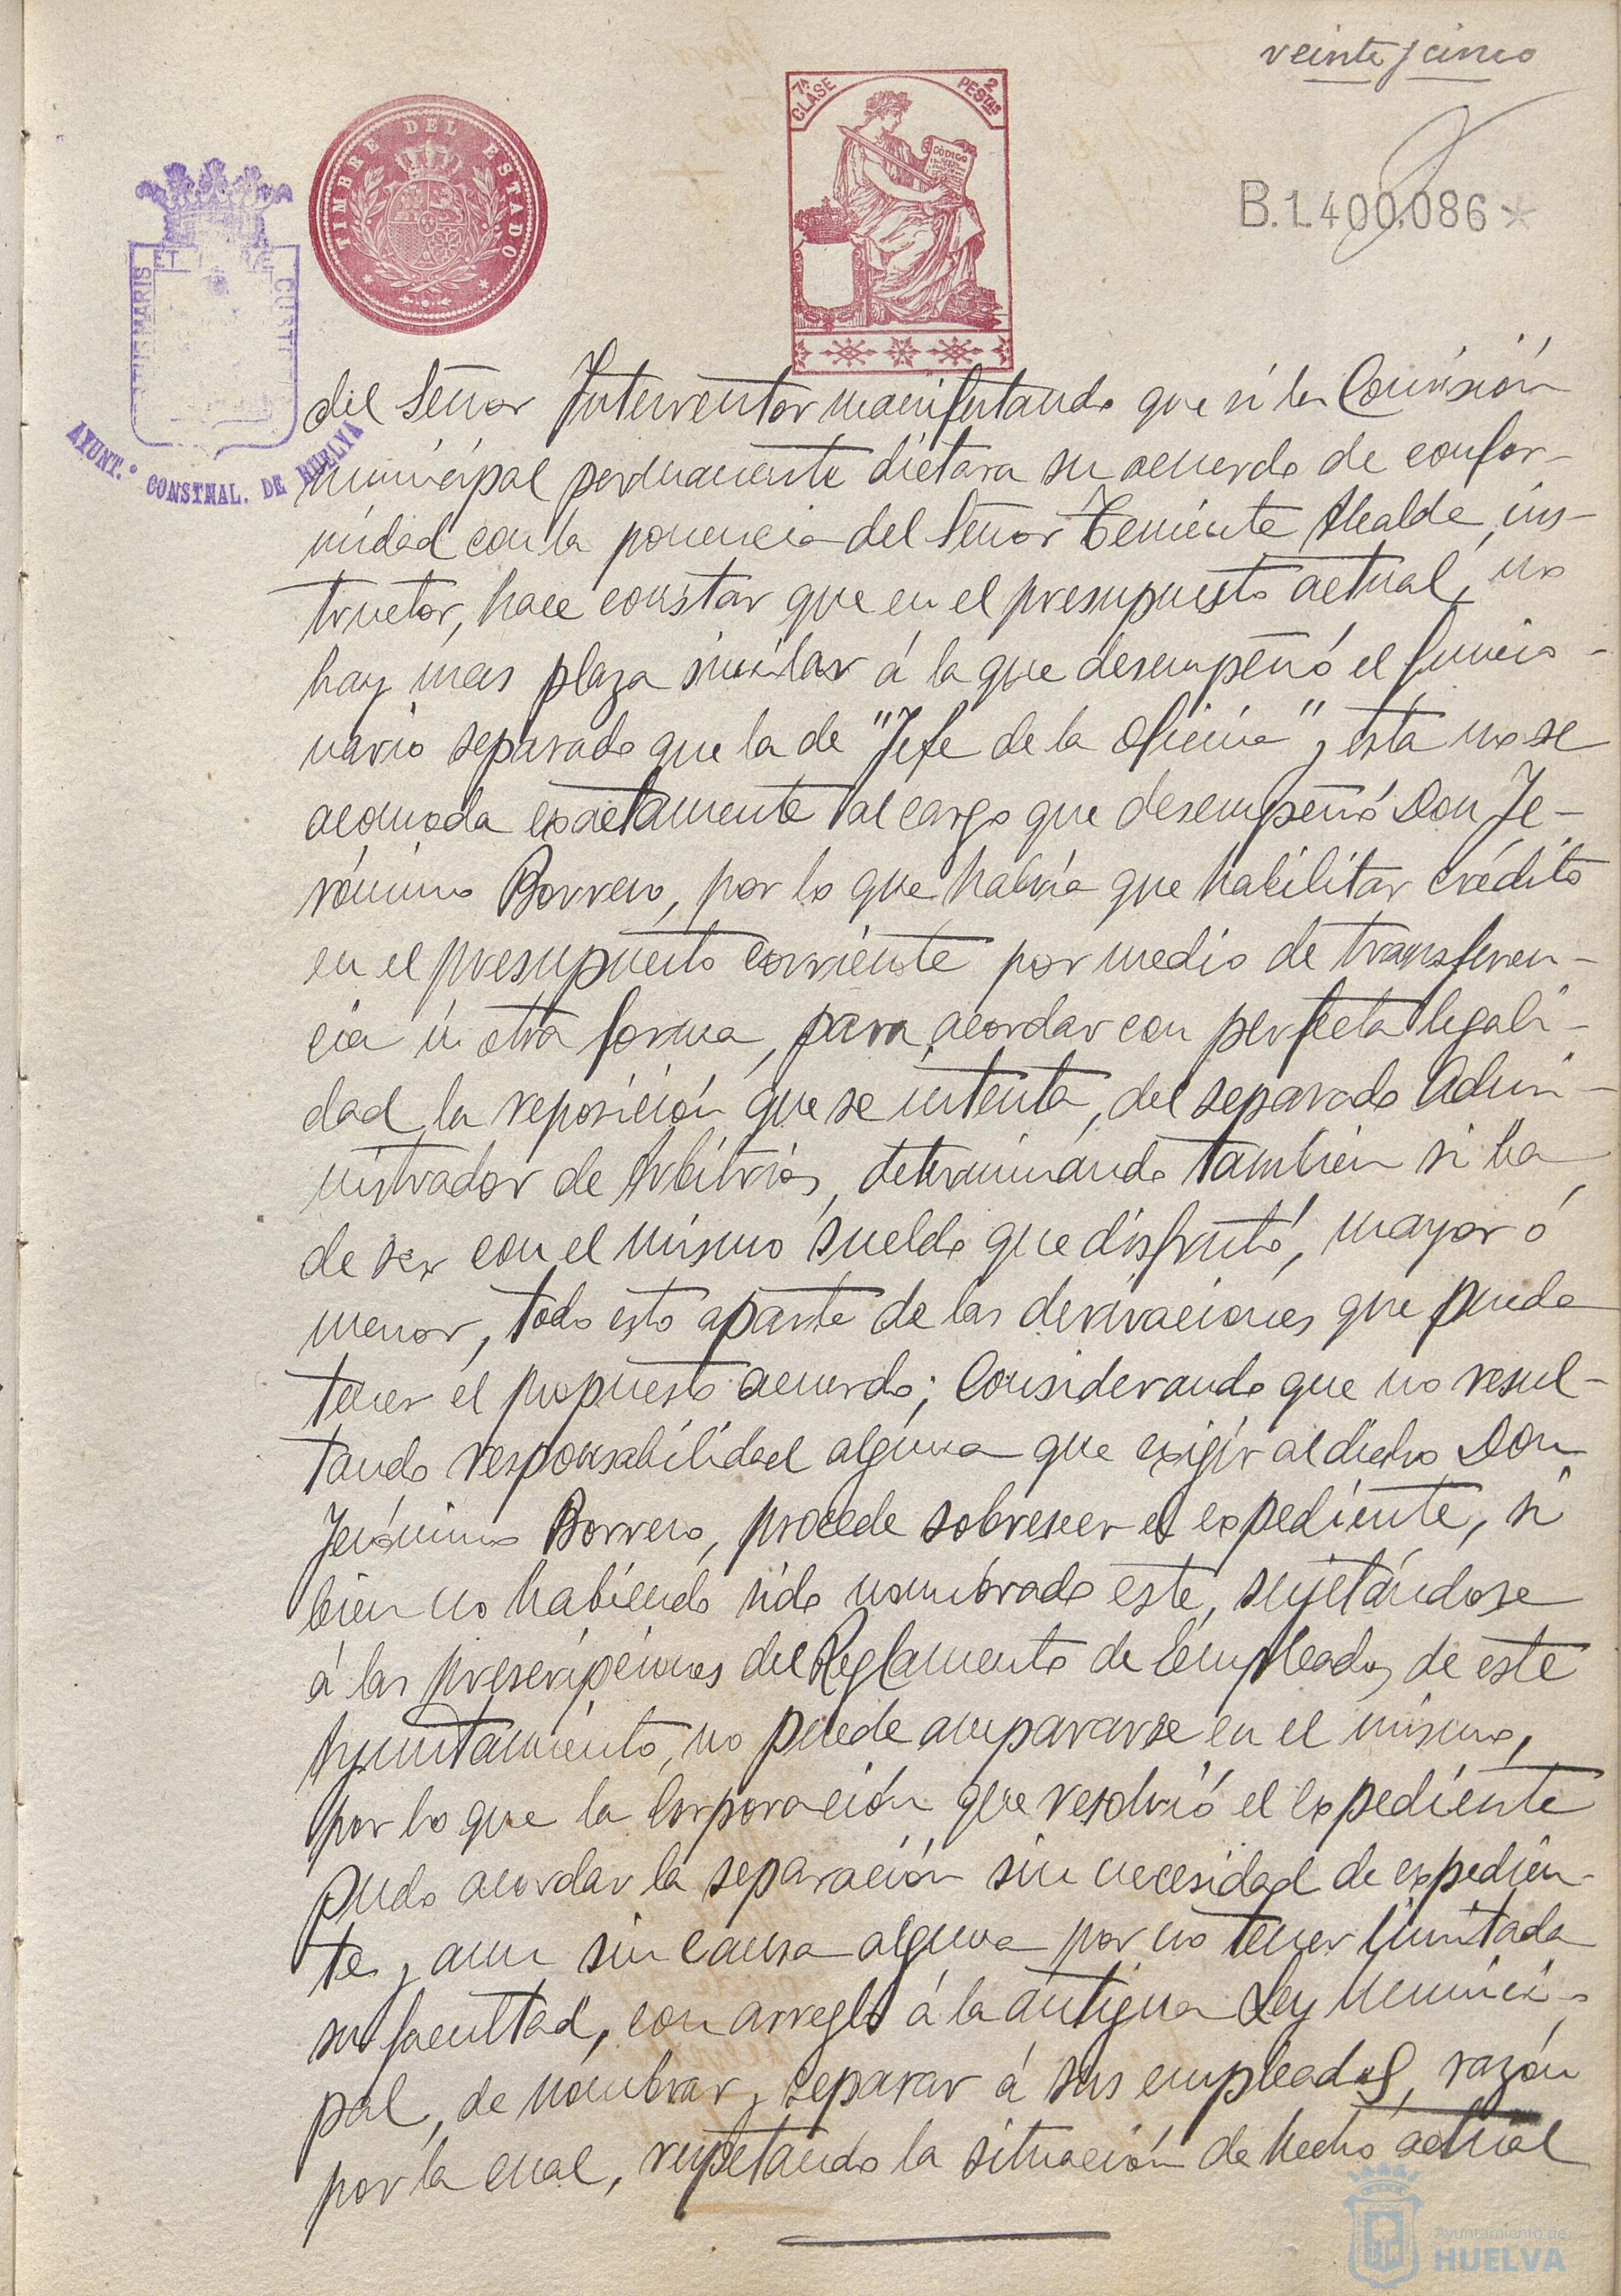 veinte y cinco
TIMBRE DEL ESTADO
7ª CLASE
2 PESTAS
CÓDIGO
B.1.400,086*
MARIS ET
AYUNT.º CONSTNAL. DE HUELVA
del Señor Interventor manifestando que si la Comisión
municipal permanente dictara su acuerdo de confor-
midad con la ponencia del Señor Teniente Alcalde, ins-
tructor, hace constar que en el presupuesto actual, no
hay mas plaza similar á la que desempeñó el funcio-
nario separado que la de "Jefe de la Oficina" y esta no se
acomoda exactamente al cargo que desempeñó Don Je-
rónimo Borrero, por lo que habria que habilitar crédito
en el presupuesto corriente por medio de transferen-
cia ú otra forma, para acordar con perfecta legali-
dad la reposición que se intenta, del separado Admi-
nistrador de Arbitrios, determinando tambien si ha
de ser con el mismo sueldo que disfrutó, mayor ó
menor, todo esto aparte de las derivaciones que pueda
tener el propuesto acuerdo; Considerando que no resul-
tando responsabilidad alguna que exigir al dicho Don
Jerónimo Borrero, procede sobreseer el expediente, si
bien no habiendo sido nombrado este, sujetándose
á las prescripciones del Reglamento de Empleados de este
Ayuntamiento, no puede ampararse en el mismo,
por lo que la Corporación que resolvió el expediente
pudo acordar la separación sin necesidad de expedien-
te y aun sin causa alguna por no tener limitada
su facultad, con arreglo á la antigua Ley Munici-
pal, de nombrar y separar á sus empleados, razón
por la cual, respetando la situación de hecho actual
Ayuntamiento de
HUELVA